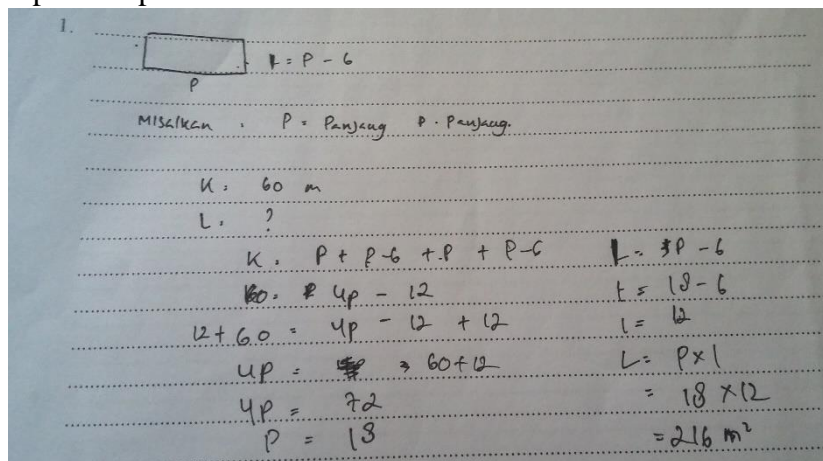 1.
l = P - 6
P
Misalkan : P = Panjang P . Panjang.
K = 60 m
L = ?
K = P + P-6 + P + P-6
60 = 4p - 12
12 + 60 = 4p - 12 + 12
4P = 60+12
4P = 72
P = 18
l = P - 6
l = 18 - 6
l = 12
L = P x l
= 18 x 12
= 216 m²